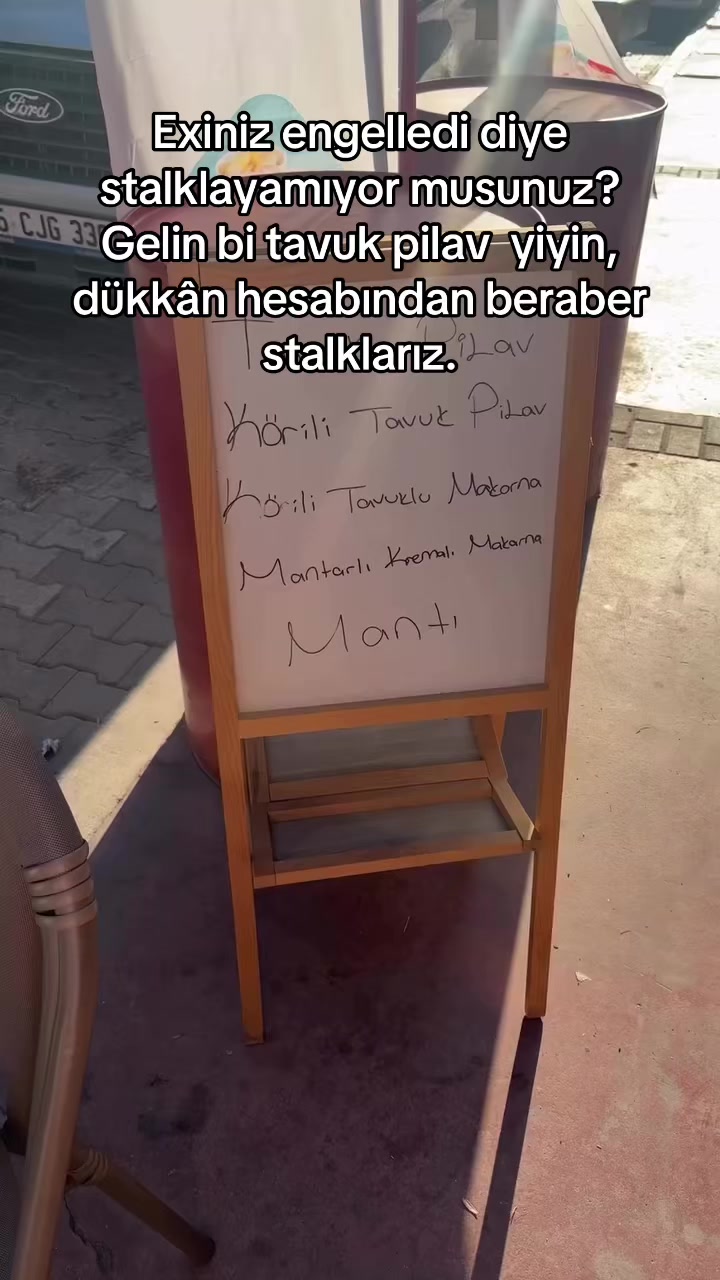 Ford
CJG 33
Exiniz engelledi diye
stalklayamıyor musunuz?
Gelin bi tavuk pilav yiyin,
dükkân hesabından beraber
stalklarız.
PiLav
Körili Tavuk PiLav
Körili Tavuklu Makarna
Mantarlı Kremalı Makarna
Mantı